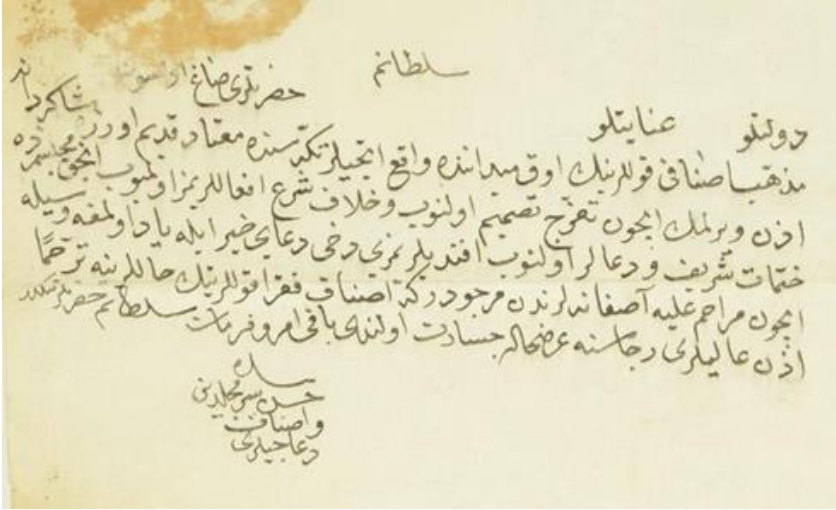 دولتلو عنايتلو سلطانم حضرتلرى صاغ اولسون
مذهب اصنافى قوللرينك اوق ميداننده واقع اتجيلر تكيه سنده معتاد قديم اوزره شاكردانه
اذن ويرلمك ايچون تفرج تصميم اولنوب و خلاف شرع افعاللريمز اولميوب انجق مجلسمزده
ختمات شريف و دعالر اولنوب افنديلريمزى دخى دعاى خير ايله ياد اولنمغه وسيله
ايچون مراحم عليه آصفانه لرندن مرجودركه اصناف فقرا قوللرينك حاللرينه ترحماً
اذن عاليلرى رجاسنه عرضحاله جسارت اولندى باقى امر و فرمان سلطانم حضرتلرينكدر
بنده
حسن سر مجلدين
و اصناف
دعاجيلرى